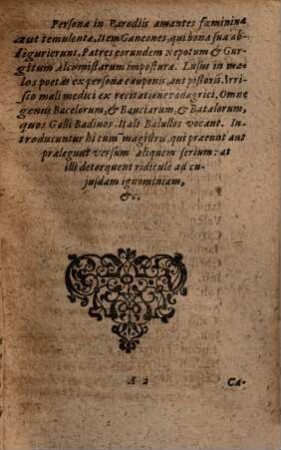 Persona in Parodiis amantes fœmininæ
aut temulentæ, Item Ganeones, qui bona sua ab-
ligurierunt. Patres eorundem Nepotum & Gur-
gitum. Alcemistarum impostura. Lusus in ma-
los poetas ex persona cauponis, aut pistoris. Irri-
sio mali medici ex recitatione podagrici, Omne
genus Bacelorum, & Bauciarum, & Batalorum,
quos Galli Badinos, Itali Balullos vocant. In-
troducuntur hi cum magistru, qui præeunt aut
prælegunt versum aliquem serium: at
illi detorquent ridiculè ad cu-
jusdam ignominiam,
&c.
A 2
Ca-